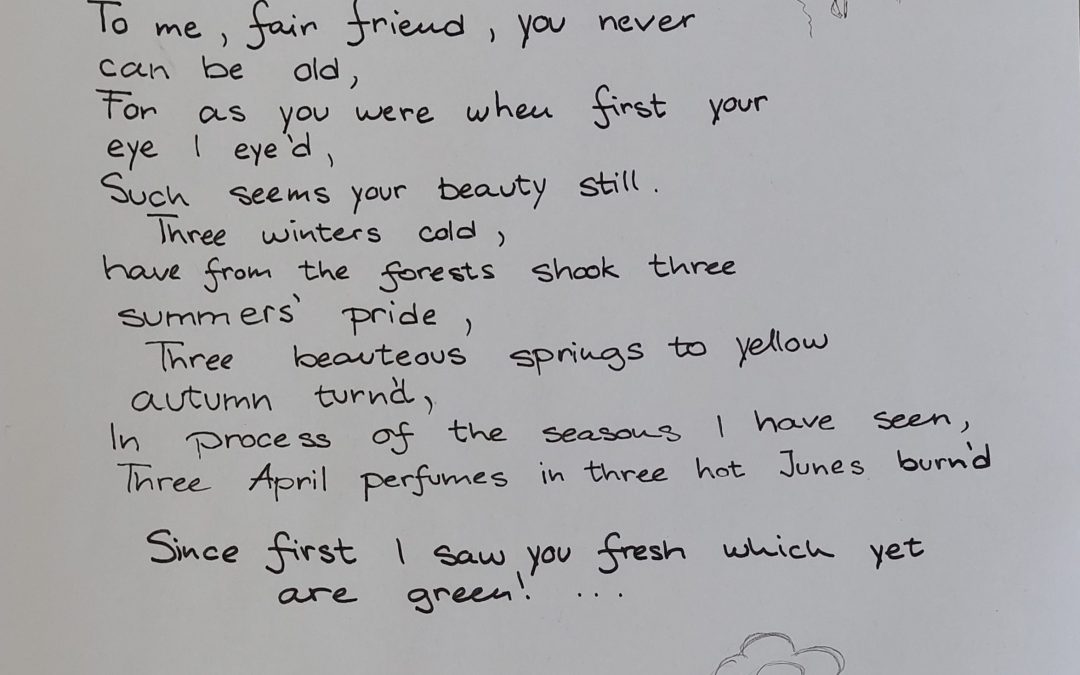 To me, fair friend, you never
can be old,
For as you were when first your
eye I eye'd,
Such seems your beauty still.
Three winters cold,
have from the forests shook three
summers' pride,
Three beauteous springs to yellow
autumn turn'd,
In process of the seasons I have seen,
Three April perfumes in three hot Junes burn'd
Since first I saw you fresh which yet
are green! ...